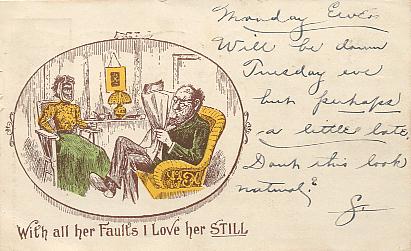 Monday Eve.
Will be down
Tuesday eve
but perhaps
a little late.
Dont this look
natural?
With all her Faults I Love her STILL